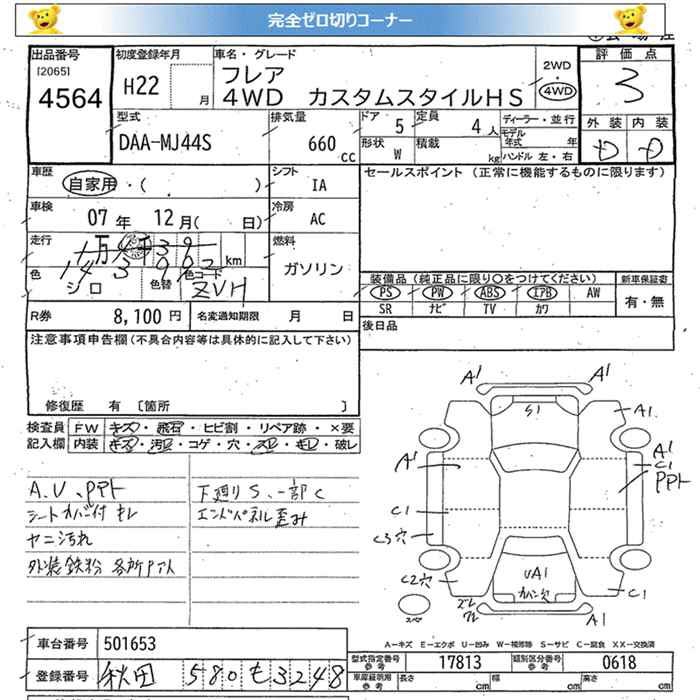 完全ゼロ切りコーナー
出品番号
[2065]
4564
初度登録年月
H22 月
車名・グレード
フレア
4WD カスタムスタイルHS
2WD
・
4WD
評価点
3
型式
DAA-MJ44S
排気量
660 cc
ドア 5
定員 4 人
形状 W
積載 kg
ディーラー・並行
モデル年式 年
ハンドル 左・右
外装 内装
D D
車歴
自家用・( )
シフト
IA
セールスポイント (正常に機能するものに限ります)
車検
07 年 12 月( 日)
冷房
AC
走行 km
143902
燃料
ガソリン
色
シロ
色替
色コード
ZVH
装備品 (純正品に限り○をつけてください)
新車保証書
PS PW ABS エアB AW
SR ナビ TV カワ
有・無
R券 8,100 円
名変通知期限 月 日
後日品
注意事項申告欄 (不具合内容等は具体的に記入して下さい)
修復歴 有 〔箇所 〕
検査員記入欄
FW キズ・飛石・ヒビ割・リペア跡・×要
内装 キズ・汚レ・コゲ・穴・スレ・キレ・破レ
A.V、PPト
シートカバー付 キレ
ヤニ汚れ
外装鉄粉 各所PTA
下廻りS、一部C
エンドパネル歪み
A1 A1
S1 A1
A1
A1
C1
PPト
C1
C3穴
C2穴
UA1
カバン欠
C1
A1
スペア
A-キズ E-エクボ U-凹み W-補修跡 S-サビ C-腐食 XX-交換済
車台番号 501653
型式指定番号 参考 17813
類別区分番号 参考 0618
登録番号 秋田 580 も 3248
車庫証明用 参考
長さ cm
幅 cm
高さ cm